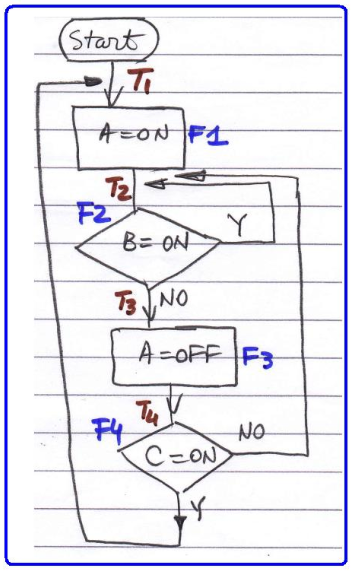 Start
T1
A=ON F1
T2
F2
B=ON Y
T3 NO
A=OFF F3
T4
F4 NO
C=ON
Y